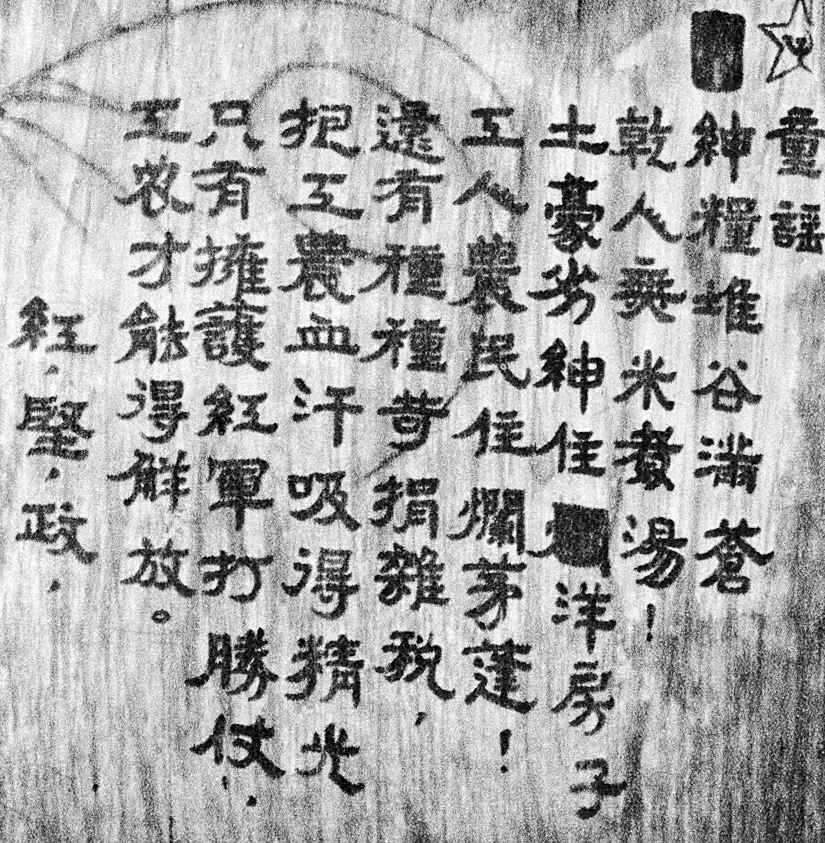 童謡
紳糧堆谷满蒼
乾人無米煮湯！
土豪劣紳住洋房子
工人農民住爛茅蓬！
還有種種苛捐雜税，
把工農血汗吸得精光
只有擁護紅軍打勝仗．
工农才能得解放。
紅，堅，政，